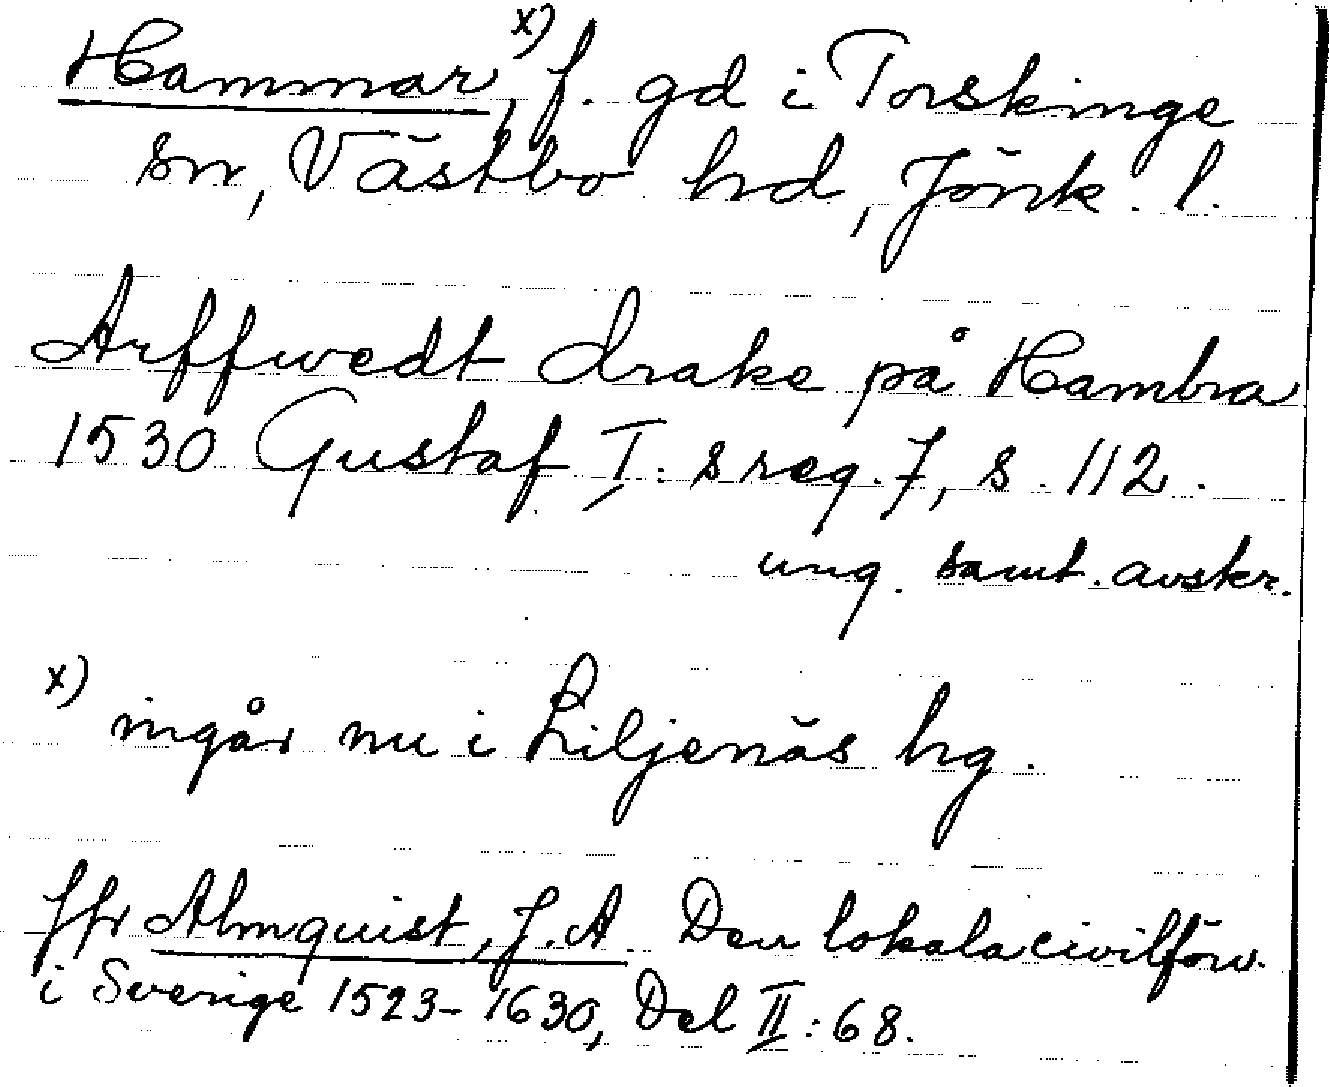 Hammar, x) f. gd i Torskinge
sn, Västbo hd, Jönk. l.
Arffwedt drake på Hambra
1530 Gustaf I:s reg. 7, s. 112.
ung. samt. avskr.
x) ingår nu i Liljenäs hg.
Jfr Almquist, J.A. Den lokala civilförv.
i Sverige 1523-1630, Del II:68.